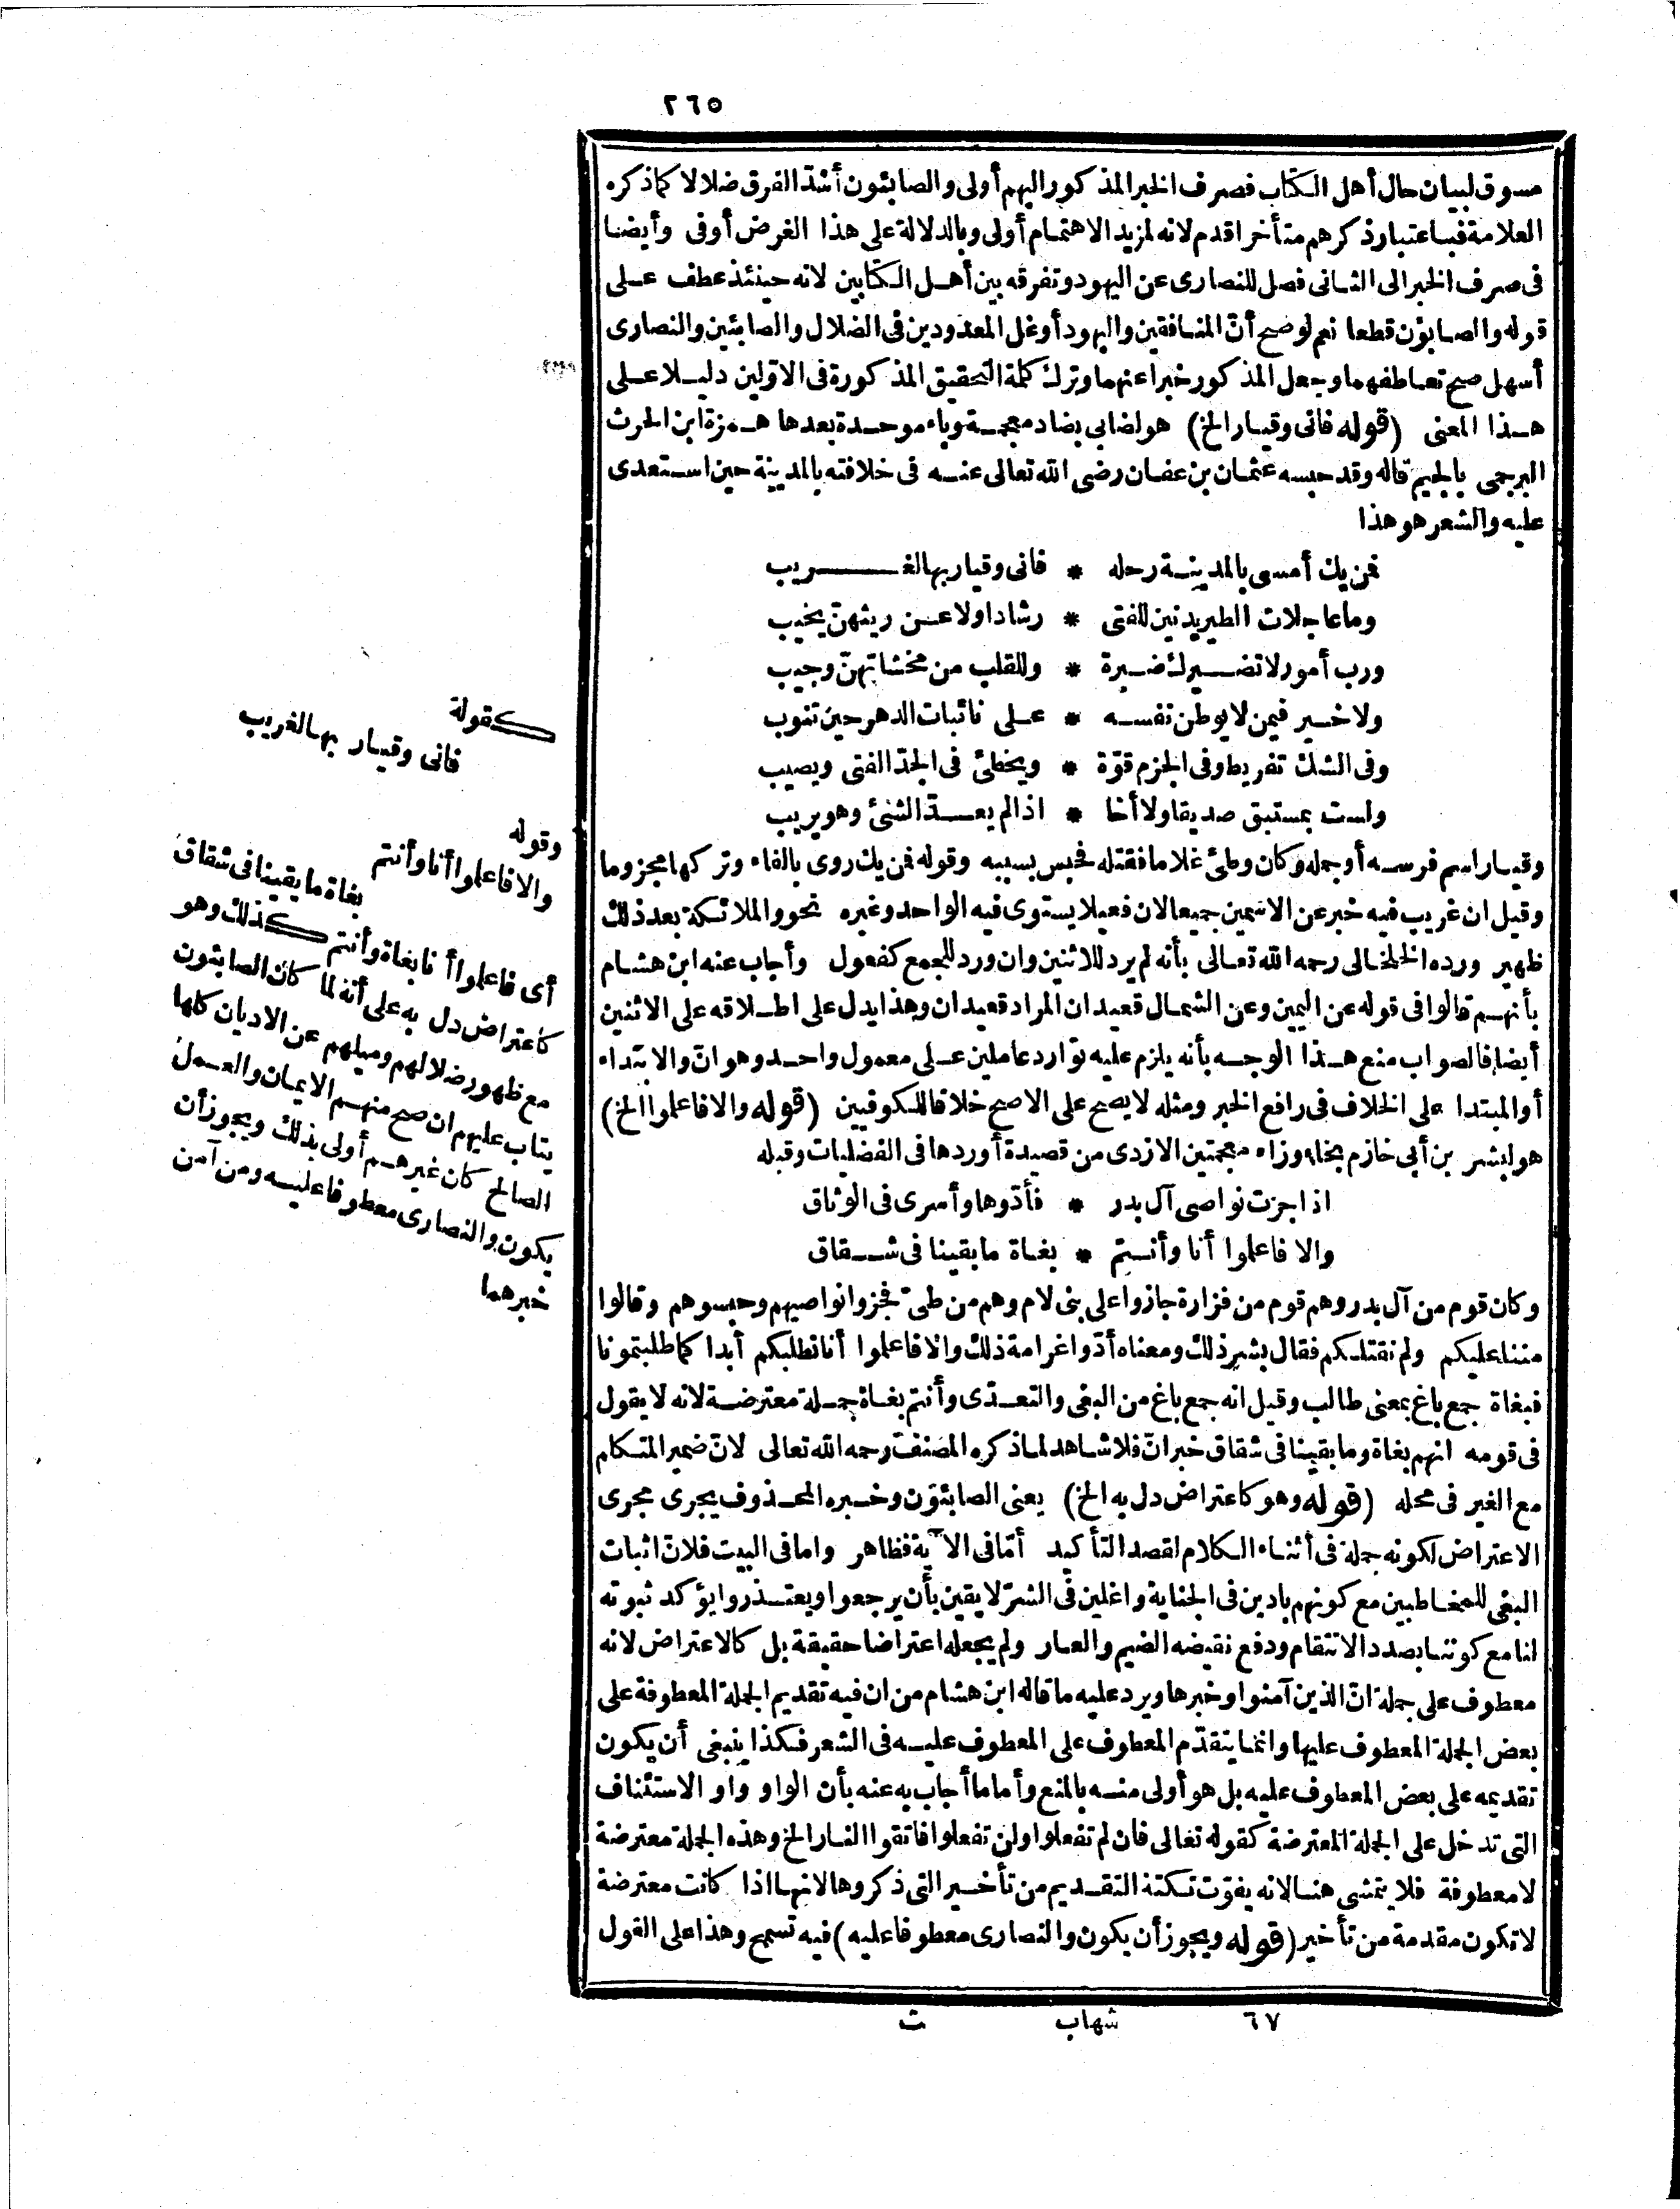 ٢٦٥
مسوق لبيان حال أهل الكتاب فصرف الخبر المذكور اليهم أولى والصابئون أشدّ الفرق ضلالا كما ذكره
العلامة فباعتبار ذكرهم متأخرا قدم لانه لمزيد الاهتمام أولى وبالدلالة على هذا الغرض أوفى وأيضا
فى صرف الخبر الى الثانى فصل للنصارى عن اليهود وتفرقه بين أهل الكتابين لانه حينئذ عطف على
قوله والصابؤن قطعا نعم لو صح أنّ المنافقين واليهود أوغل المعدودين فى الضلال والصابئين والنصارى
أسهل صح تعاطفهما وجعل المذكور خبرا عنهما وترك كلمة التحقيق المذكورة فى الاوّلين دليلا على
هذا المعنى (قوله فانى وقيار الخ) هو لضابى بضاد معجمة وباء موحدة بعدها همزة ابن الحرث
البرجمى بالجيم قاله وقد حبسه عثمان بن عفان رضى الله تعالى عنه فى خلافته بالمدينة حين استعدى
عليه والشعر هو هذا
فمن يك أمسى بالمدينة رحله * فانى وقيار بها لغريب
وما عاجلات الطير يدنين للفتى * رشادا ولا عن ريثهنّ يخيب
ورب أمور لا تضيرك ضيرة * وللقلب من مخشاتهنّ وجيب
ولا خير فيمن لا يوطن نفسه * على نائبات الدهر حين تنوب
وفى الشك تفريط وفى الجزم قوّة * ويخطئ فى الجدّ الفتى ويصيب
ولست بمستبق صديقا ولا أخا * اذا لم يعدّ الشئ وهو يريب
وقيار اسم فرسه أو جمله وكان وطئ غلاما فقتله فحبس بسببه وقوله فمن يك روى بالفاء وتركها مجزوما
وقيل ان غريب فيه خبر عن الاسمين جميعا لان فعيلا يستوى فيه الواحد وغيره نحو والملائكة بعد ذلك
ظهير ورده الخلخالى رحمه الله تعالى بأنه لم يرد للاثنين وان ورد للجمع كفعول وأجاب عنه ابن هشام
بأنهم قالوا فى قوله عن اليمين وعن الشمال قعيد ان المراد قعيدان وهذا يدل على اطلاقه على الاثنين
أيضا فالصواب منع هذا الوجه بأنه يلزم عليه توارد عاملين على معمول واحد وهو انّ والابتداء
أو المبتدا على الخلاف فى رافع الخبر ومثله لا يصح على الاصح خلافا للكوفيين (قوله والا فاعلموا الخ)
هو لبشر بن أبى خازم بخاء وزاء معجمتين الازدى من قصيدة أوردها فى المفضليات وقبله
اذا جزت نواصى آل بدر * فأدّوها وأسرى فى الوثاق
والا فاعلموا أنا وأنتم * بغاة ما بقينا فى شقاق
وكان قوم من آل بدر وهم قوم من فزارة جازوا على بنى لام وهم من طىّ فجزوا نواصيهم وحبسوهم وقالوا
مننا عليكم ولم نقتلكم فقال بشر ذلك ومعناه أدّوا غرامة ذلك والا فاعلموا أنا نطلبكم أبدا كما طلبتمونا
فبغاة جمع باغ بمعنى طالب وقيل انه جمع باغ من البغى والتعدّى وأنتم بغاة جملة معترضة لانه لا يقول
فى قومه انهم بغاة وما بقينا فى شقاق خبر انّ فلا شاهد لما ذكره المصنف رحمه الله تعالى لانّ ضمير المتكلم
مع الغير فى محله (قوله وهو كاعتراض دل به الخ) يعنى الصابئون وخبره المحذوف يجرى مجرى
الاعتراض لكونه جملة فى أثناء الكلام لقصد التأكيد أمّا فى الآية فظاهر واما فى البيت فلانّ اثبات
البغى للمخاطبين مع كونهم بادين فى الجناية واغلين فى الشرّ لا يقين بأن يرجعوا ويعتذروا يؤكد ثبوته
لنا مع كوننا بصدد الانتقام ودفع نقيضه الضيم والعار ولم يجعله اعتراضا حقيقة بل كالاعتراض لانه
معطوف على جملة انّ الذين آمنوا وخبرها ويرد عليه ما قاله ابن هشام من ان فيه تقديم الجملة المعطوفة على
بعض الجملة المعطوف عليها وانما يتقدّم المعطوف على المعطوف عليه فى الشعر فكذا ينبغى أن يكون
تقديمه على بعض المعطوف عليه بل هو أولى منه بالمنع وأما ما أجاب به عنه بأن الواو واو الاستئناف
التى تدخل على الجملة المعترضة كقوله تعالى فان لم تفعلوا ولن تفعلوا فاتقوا النار الخ وهذه الجملة معترضة
لا معطوفة فلا يتمشى هنا لانه يفوّت نكتة التقديم من تأخير التى ذكروها لانها اذا كانت معترضة
لا تكون مقدمة من تأخير (قوله ويجوز أن يكون والنصارى معطوفا عليه) فيه تسمح وهذا على القول
كقوله
فانى وقيار بها لغريب
وقوله
والا فاعلموا أنا وأنتم
بغاة ما بقينا فى شقاق
أى فاعلموا أنا بغاة وأنتم كذلك وهو
كاعتراض دل به على أنه لما كان الصابئون
مع ظهور ضلالهم وميلهم عن الاديان كلها
يتاب عليهم ان صح منهم الايمان والعمل
الصالح كان غيرهم أولى بذلك ويجوز أن
يكون والنصارى معطوفا عليه ومن آمن
خبرهما
٦٧ شهاب ث